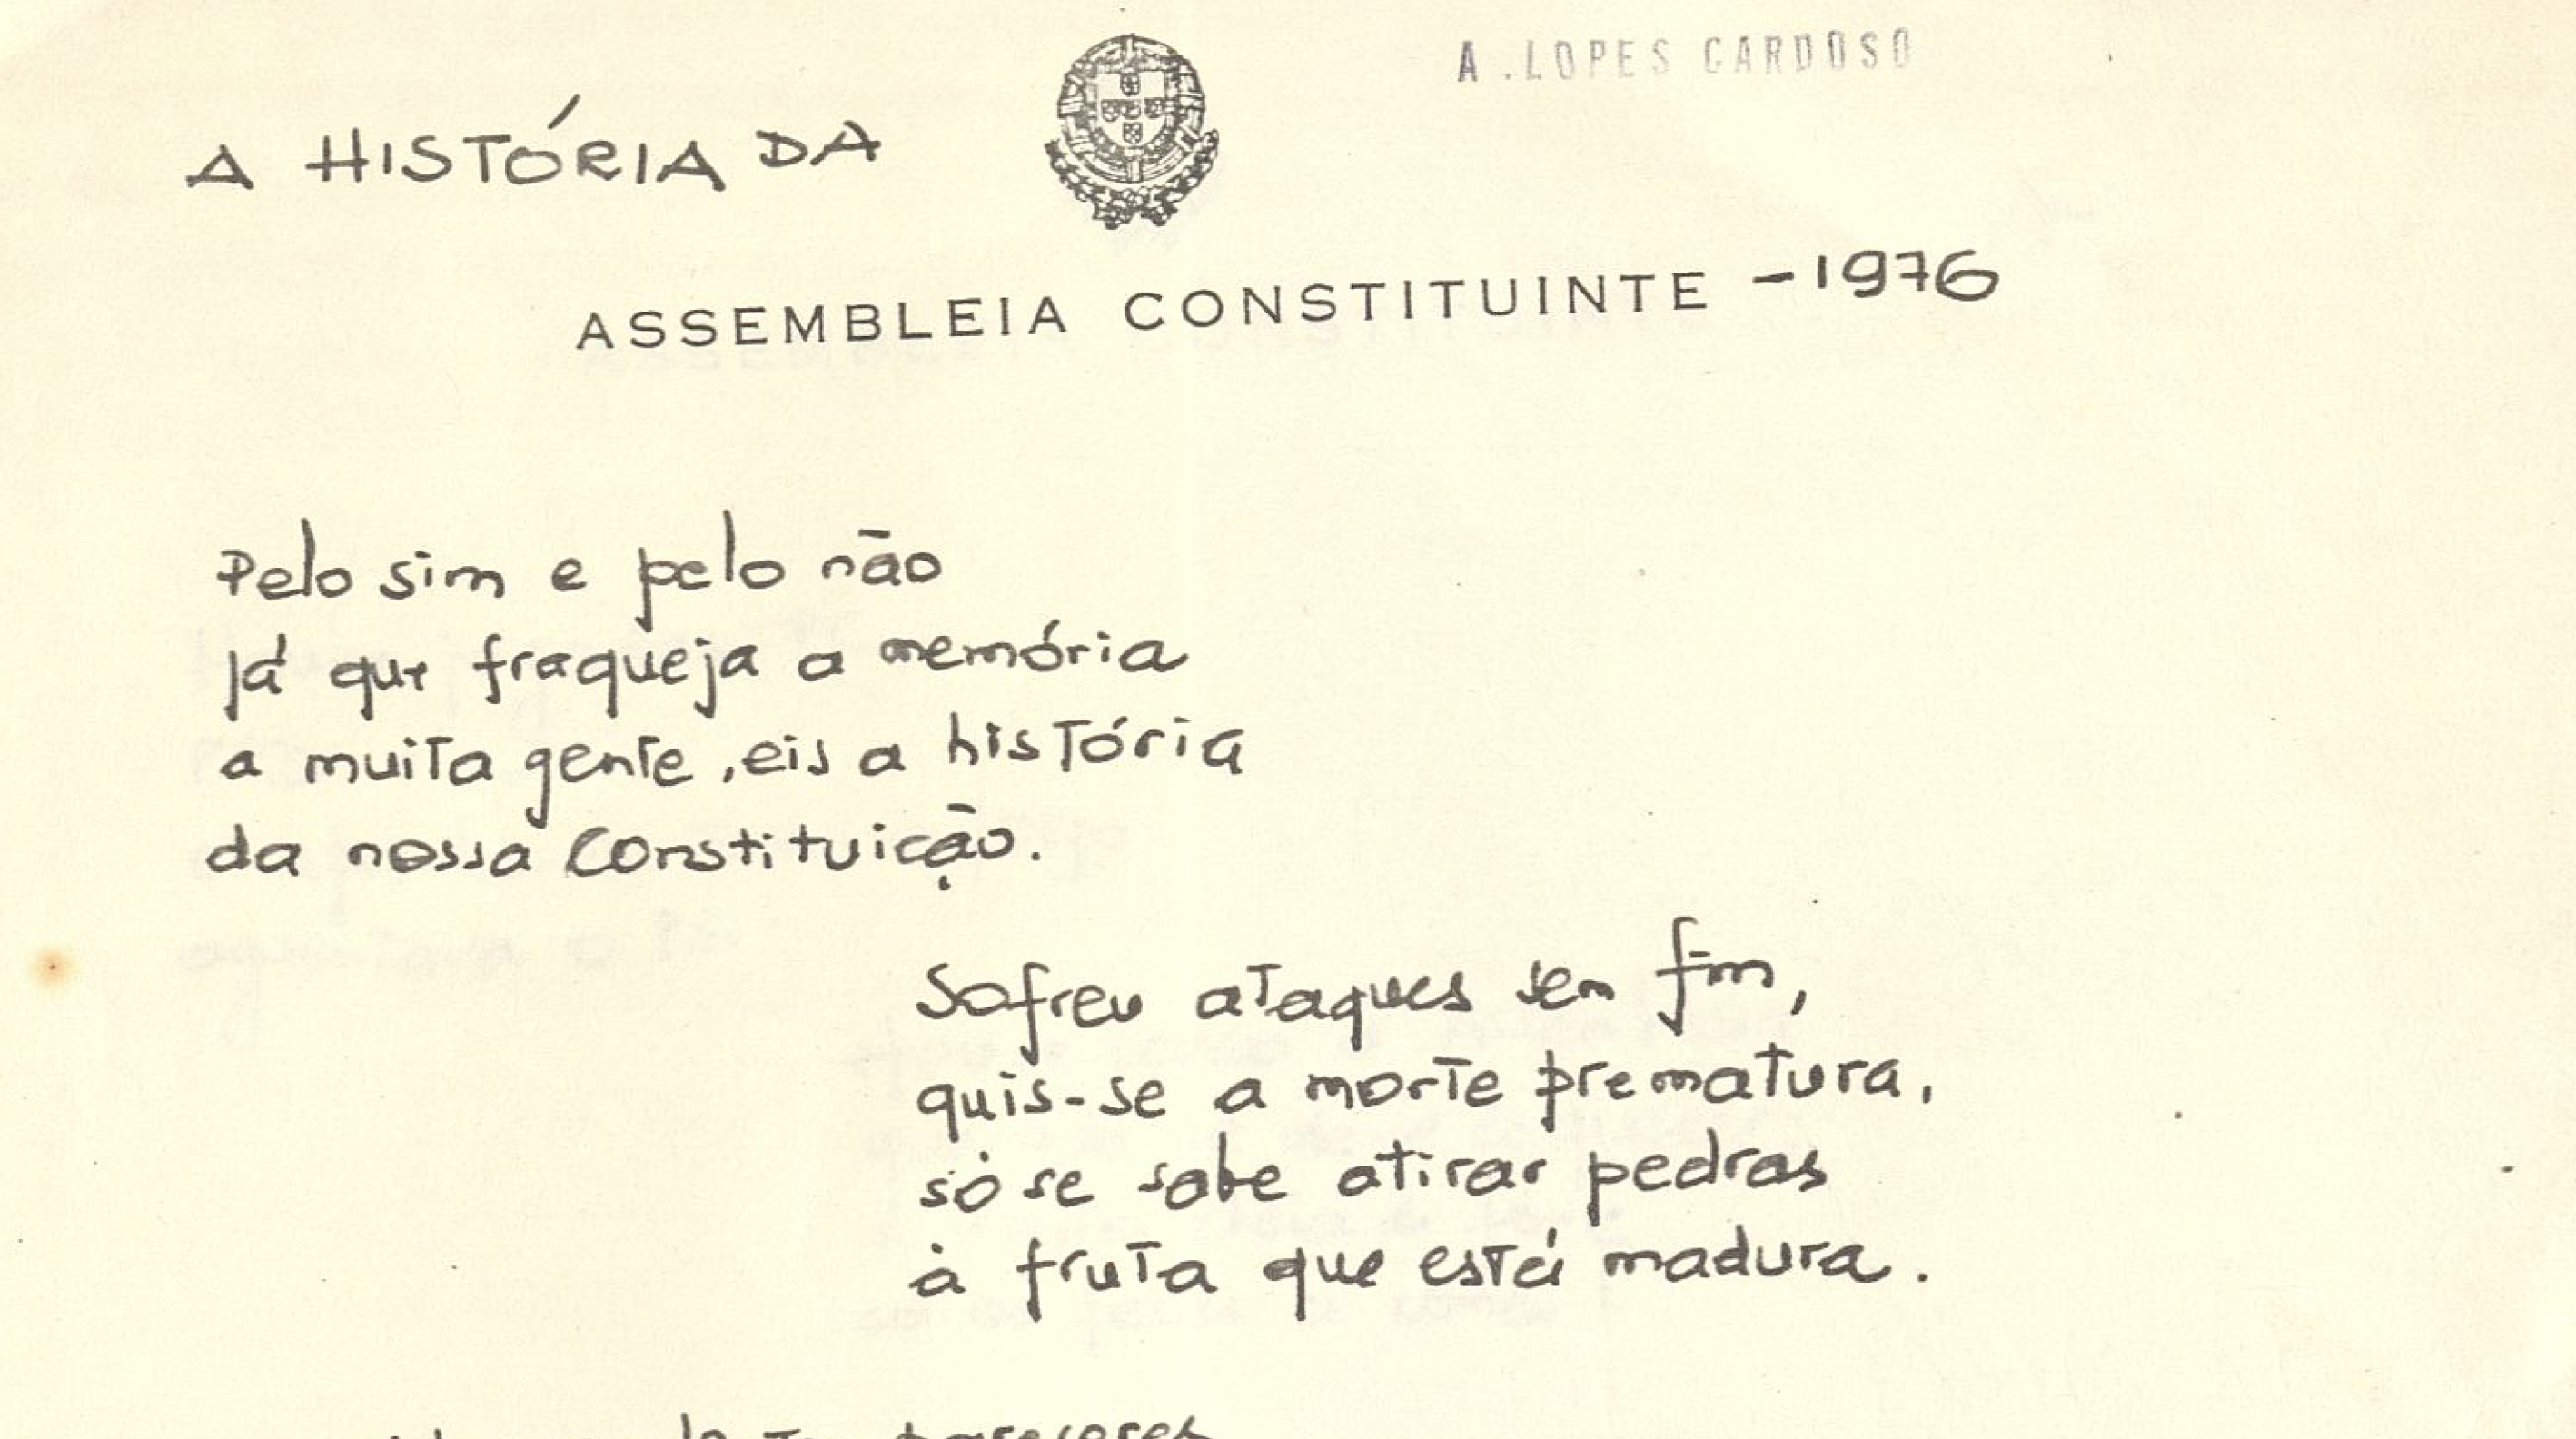 A. LOPES CARDOSO
A HISTÓRIA DA
ASSEMBLEIA CONSTITUINTE - 1976
Pelo sim e pelo não
já que fraqueja a memória
a muita gente, eis a história
da nossa Constituição.
Sofreu ataques sem fim,
quis-se a morte prematura,
só se sabe atirar pedras
à fruta que está madura.
pareceres